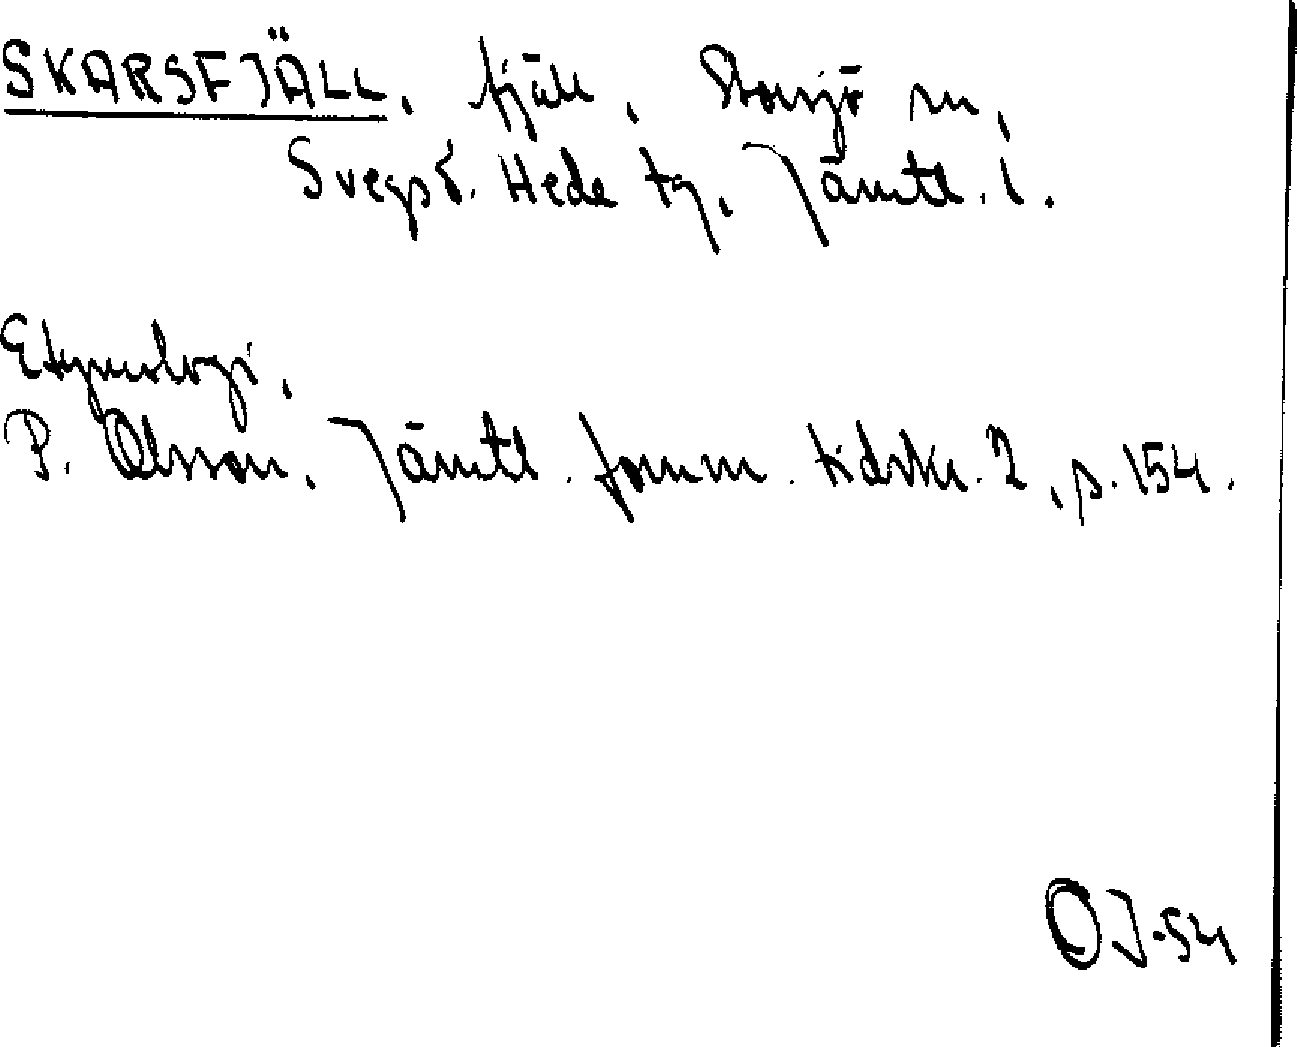 SKARSFJÄLL, fjäll, Storsjö sn,
Svegs d. Hede tg, Jämtl. l.
Etymologi.
P. Olsson, Jämtl. fornm. tidskr. 2, s. 154.
OJ-54